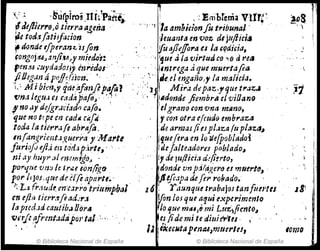 Suspiros III. Parte,
ô destierro, ò tierra agena
de toda satisfacion
â donde esperança es son
congojas, ansias, y miedos:
pensè cuydados, y enredos
si llegan â possession.
Mi bien, y que asan se passa?
vna legua es cada passo,
y no ay desgraciado caso.
que no tope en cada casa
toda la tierra se abrasa.
ensangrienta guerra y Marte
furioso està en toda parte,
ni ay huyr al enemigo,
porque vno le trae consigo
por lexos, que de èl se aparte.
La fraude en carro triumphal
en esta tierra fe adora
la piedad cautiba llora
verse afrentada por tal
Emblema VIII.
208
la ambicion su tribunal
leuanta en voz de justicia
su assessora es la codicia,
que à la virtud co odra
entrega à que muerta sea
de el engaño, y la malicia.
Mira de paz, y que traza
adonde siembra el villano
el grano con vna mano,
y con otra escudo embraza
de armas si es plaza su plaza,
que fera en lo despoblado
de salteadores poblado,
y de justicia desierto,
donde vn passagero es muerto,
si escapa de ser robado.
Y aunque trabajos tan fuertes
son los que aqui experimento
lo que mas, ô mi Luz, siento,
es si de mi te diuiertes
executa penas, muertes,
como
16
12
17
18